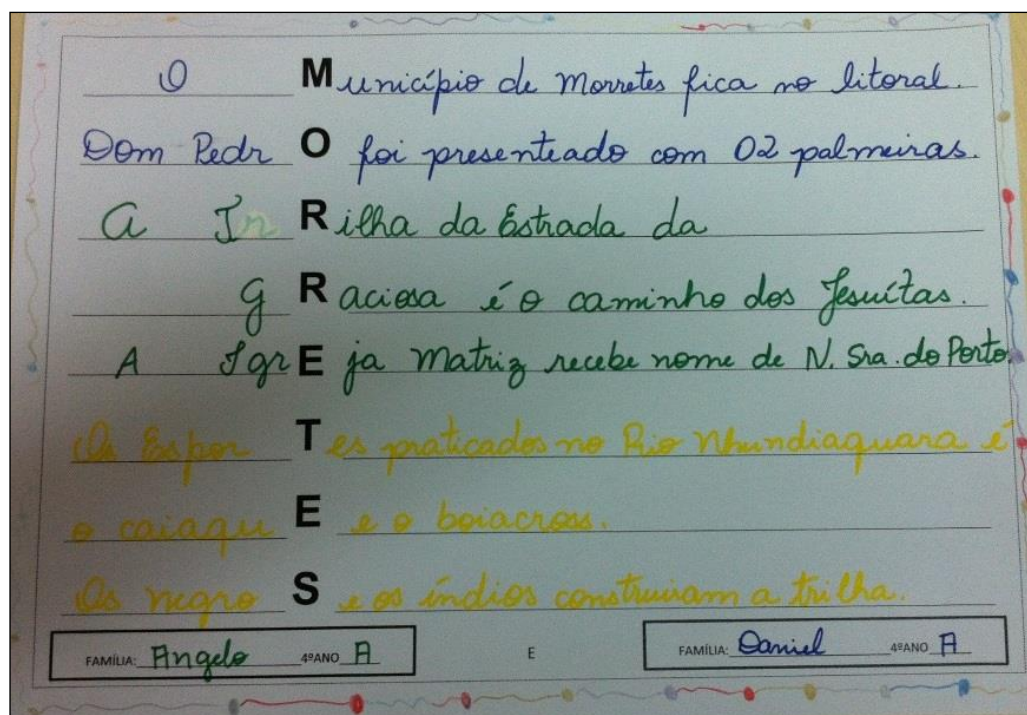 O Município de Morretes fica no litoral.
Dom Pedr O foi presenteado com 02 palmeiras.
A Tr Rilha da Estrada da
g R aciosa é o caminho dos Jesuítas.
A Igr E ja Matriz recebe nome de N. Sra. do Porto.
Os Espor T es praticados no Rio Nhundiaquara é
o caiaqu E e o boiacross.
Os negro S e os índios construiram a trilha.
FAMÍLIA: Angelo 4ºANO A E FAMÍLIA: Daniel 4ºANO A